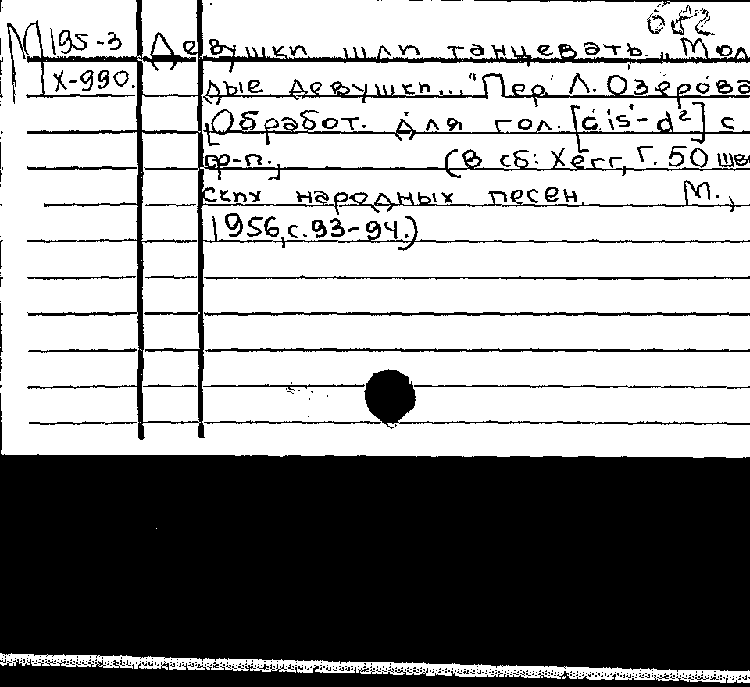 682
М 195-3 Девушки шли танцевать „Мол
Х-990. дые девушки..." Пер Л. Озерова
[Обработ. для гол. [cis-d²] с
ф-п.] (В сб: Хегг, Г. 50 шве
ских народных песен М.,
1956, с. 93-94.)